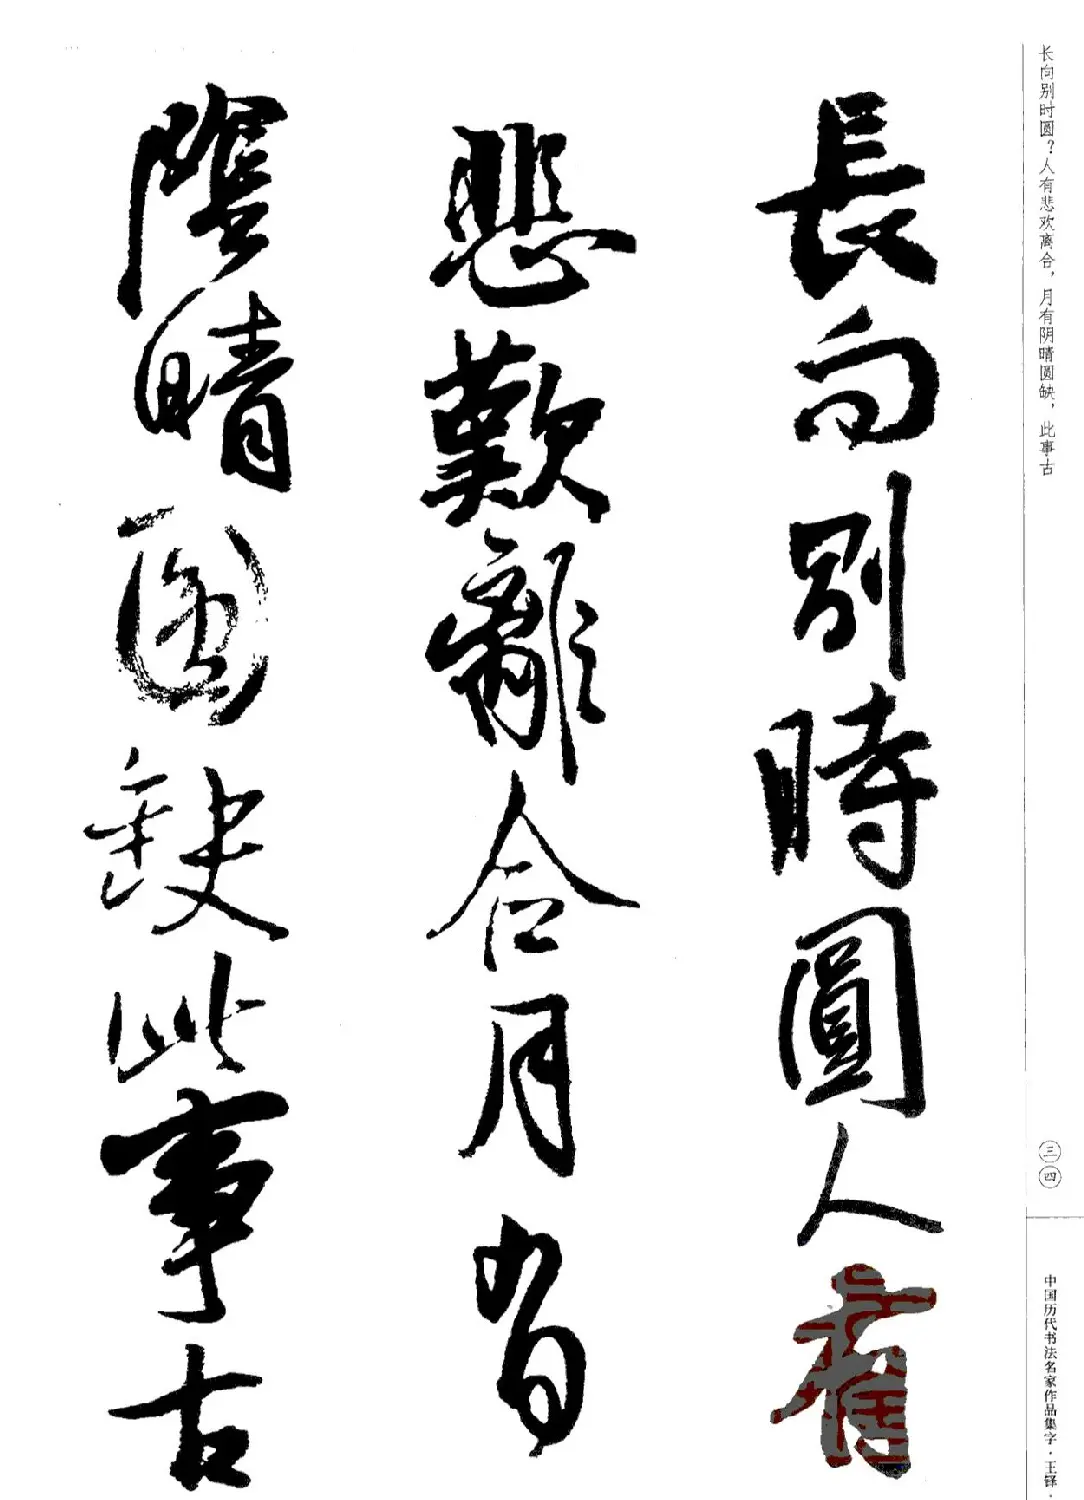 长向别时圆？人有悲欢离合，月有阴晴圆缺，此事古
三四
中国历代书法名家作品集字·王铎·
長向别時圓人有
悲歡離合月有
陰晴圓缺此事古